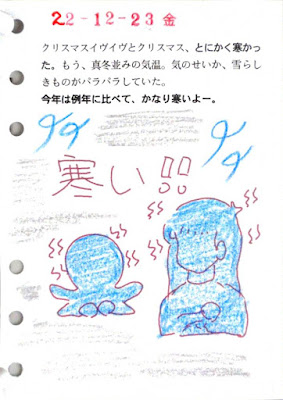 22-12-23 金
クリスマスイヴイヴとクリスマス、とにかく寒かっ
た。もう、真冬並みの気温。気のせいか、雪らし
きものがパラパラしていた。
今年は例年に比べて、かなり寒いよー。
寒い!!